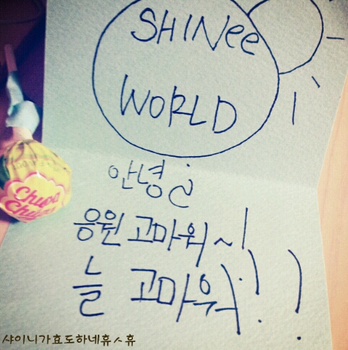 SHINee
WORLD
안녕
Chupa
Chups
응원 고마워~!
늘 고마워!!
샤이니가효도하네휴ㅅ휴